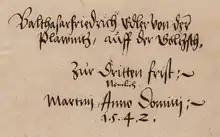 Balthasar friedrich Edler von der
Plawnitz, auff der Golzsch.
Zur dritten frist:
Nemlich
Martini Anno Domini:
1.5.4.2.